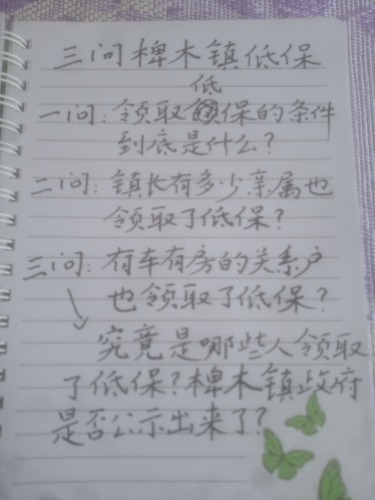 三问椑木镇低保
低
一问：领取保的条件
到底是什么？
二问：镇长有多少亲属也
领取了低保？
三问：有车有房的关系户
也领取了低保？
究竟是哪些人领取
了低保？椑木镇政府
是否公示出来了？